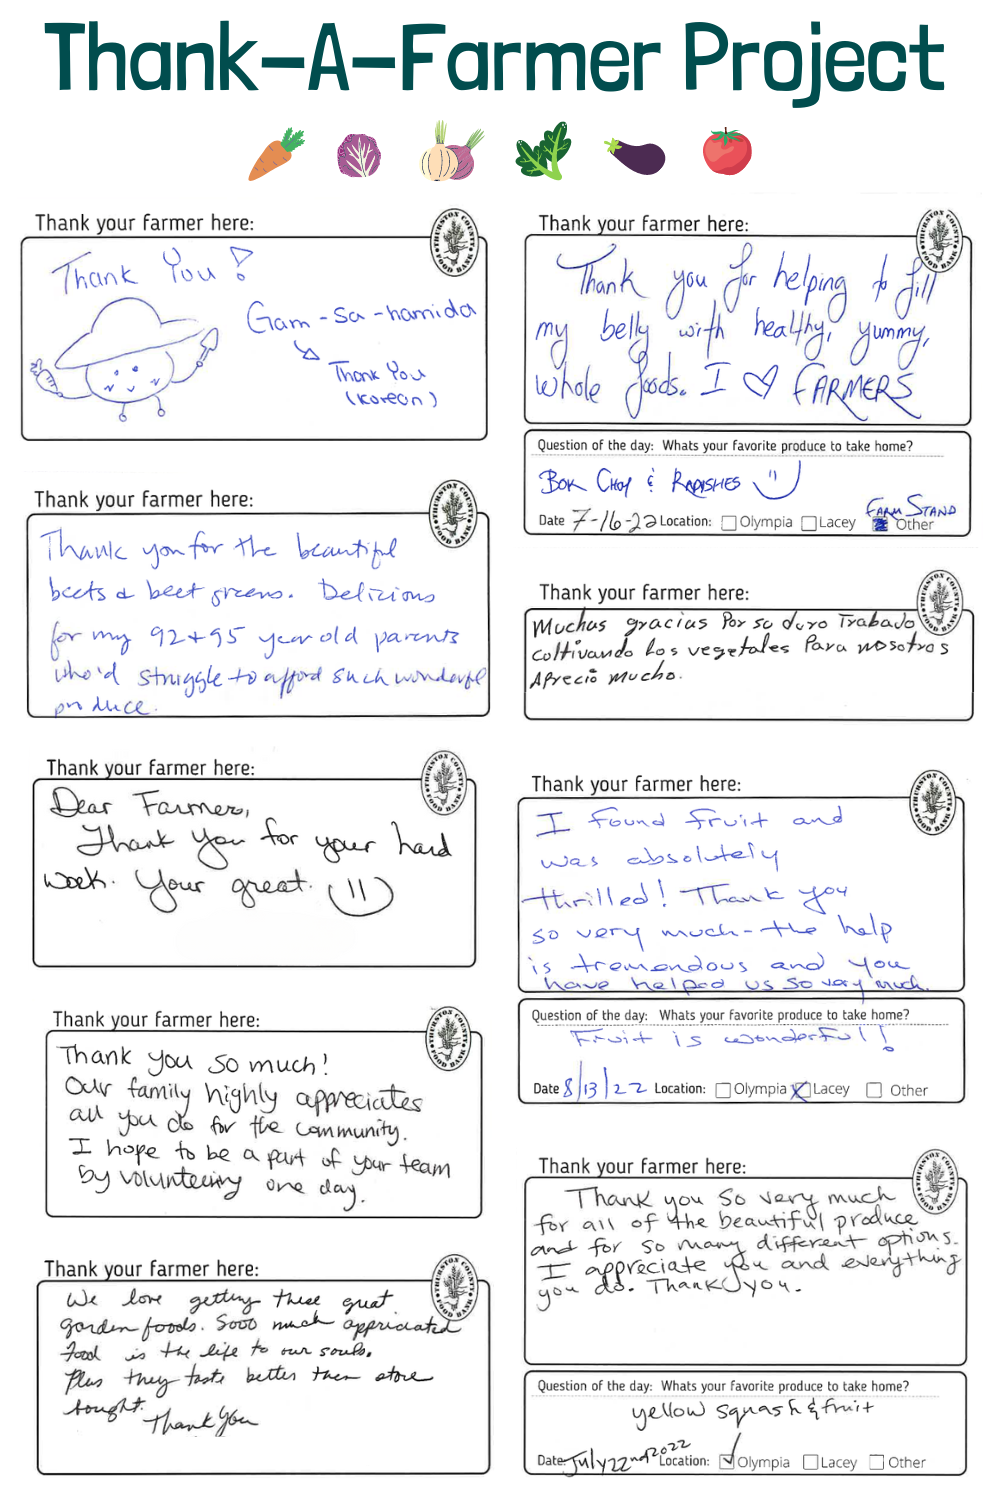 Thank-A-Farmer Project
Thank your farmer here:
THURSTON COUNTY FOOD BANK
Thank You!
Gam-sa-hamida
Thank You
(Korean)
Thank your farmer here:
THURSTON COUNTY FOOD BANK
Thank you for the beautiful
beets & beet greens. Delicious
for my 92+95 year old parents
who'd struggle to afford such wonderful
produce.
Thank your farmer here:
THURSTON COUNTY FOOD BANK
Dear Farmers,
Thank You for your hard
work. Your great.
Thank your farmer here:
THURSTON COUNTY FOOD BANK
Thank you so much!
Our family highly appreciates
all you do for the community.
I hope to be a part of your team
by volunteering one day.
Thank your farmer here:
THURSTON COUNTY FOOD BANK
We love getting these great
garden foods. Sooo much appriciated
Food is the life to our souls.
Plus they taste better then store
bought.
Thank You
Thank your farmer here:
THURSTON COUNTY FOOD BANK
Thank you for helping to fill
my belly with healthy, yummy,
whole foods. I ♡ FARMERS
Question of the day: Whats your favorite produce to take home?
BOK CHOY & RADISHES
FARM STAND
Date 7-16-22 Location: Olympia Lacey Other
Thank your farmer here:
THURSTON COUNTY FOOD BANK
Muchas gracias Por su duro Trabado
coltivando Los vegetales Para nosotros
Aprecio mucho.
Thank your farmer here:
THURSTON COUNTY FOOD BANK
I found fruit and
was absolutely
thrilled! Thank you
so very much - the help
is tremendous and you
have helped us so very much.
Question of the day: Whats your favorite produce to take home?
Fruit is wonderful!
Date 8/13/22 Location: Olympia Lacey Other
Thank your farmer here:
THURSTON COUNTY FOOD BANK
Thank you so very much
for all of the beautiful produce
and for so many different options.
I appreciate you and everything
you do. Thank you.
Question of the day: Whats your favorite produce to take home?
yellow squash & fruit
Date: July 22nd 2022 Location: Olympia Lacey Other